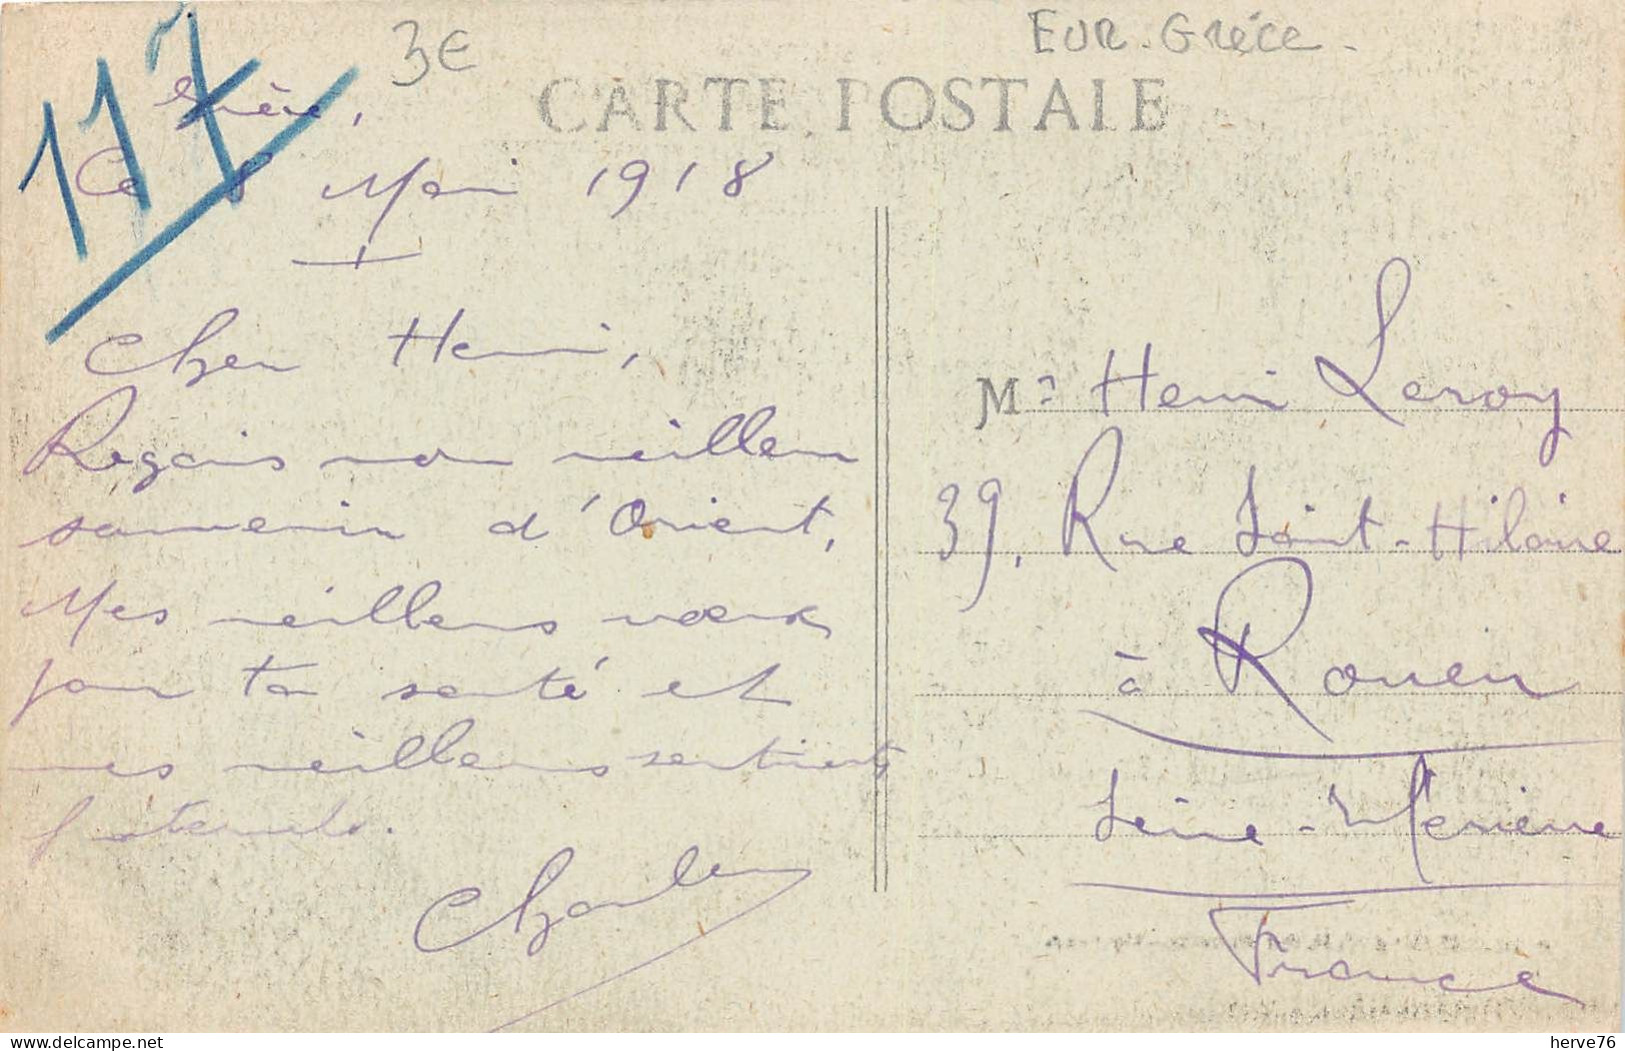 117
3€
EUR. Grèce.
CARTE POSTALE
Grèce,
Ce 8 Mai 1918
Cher Henri,
Reçois mon meilleur
souvenir d'Orient,
Mes meilleurs vœux
pour ta santé et
mes meilleurs sentiments
fraternels.
Charles
Mr Henri Leroy
39, Rue Saint-Hilaire
à Rouen
Seine-Inférieure
France
herve76